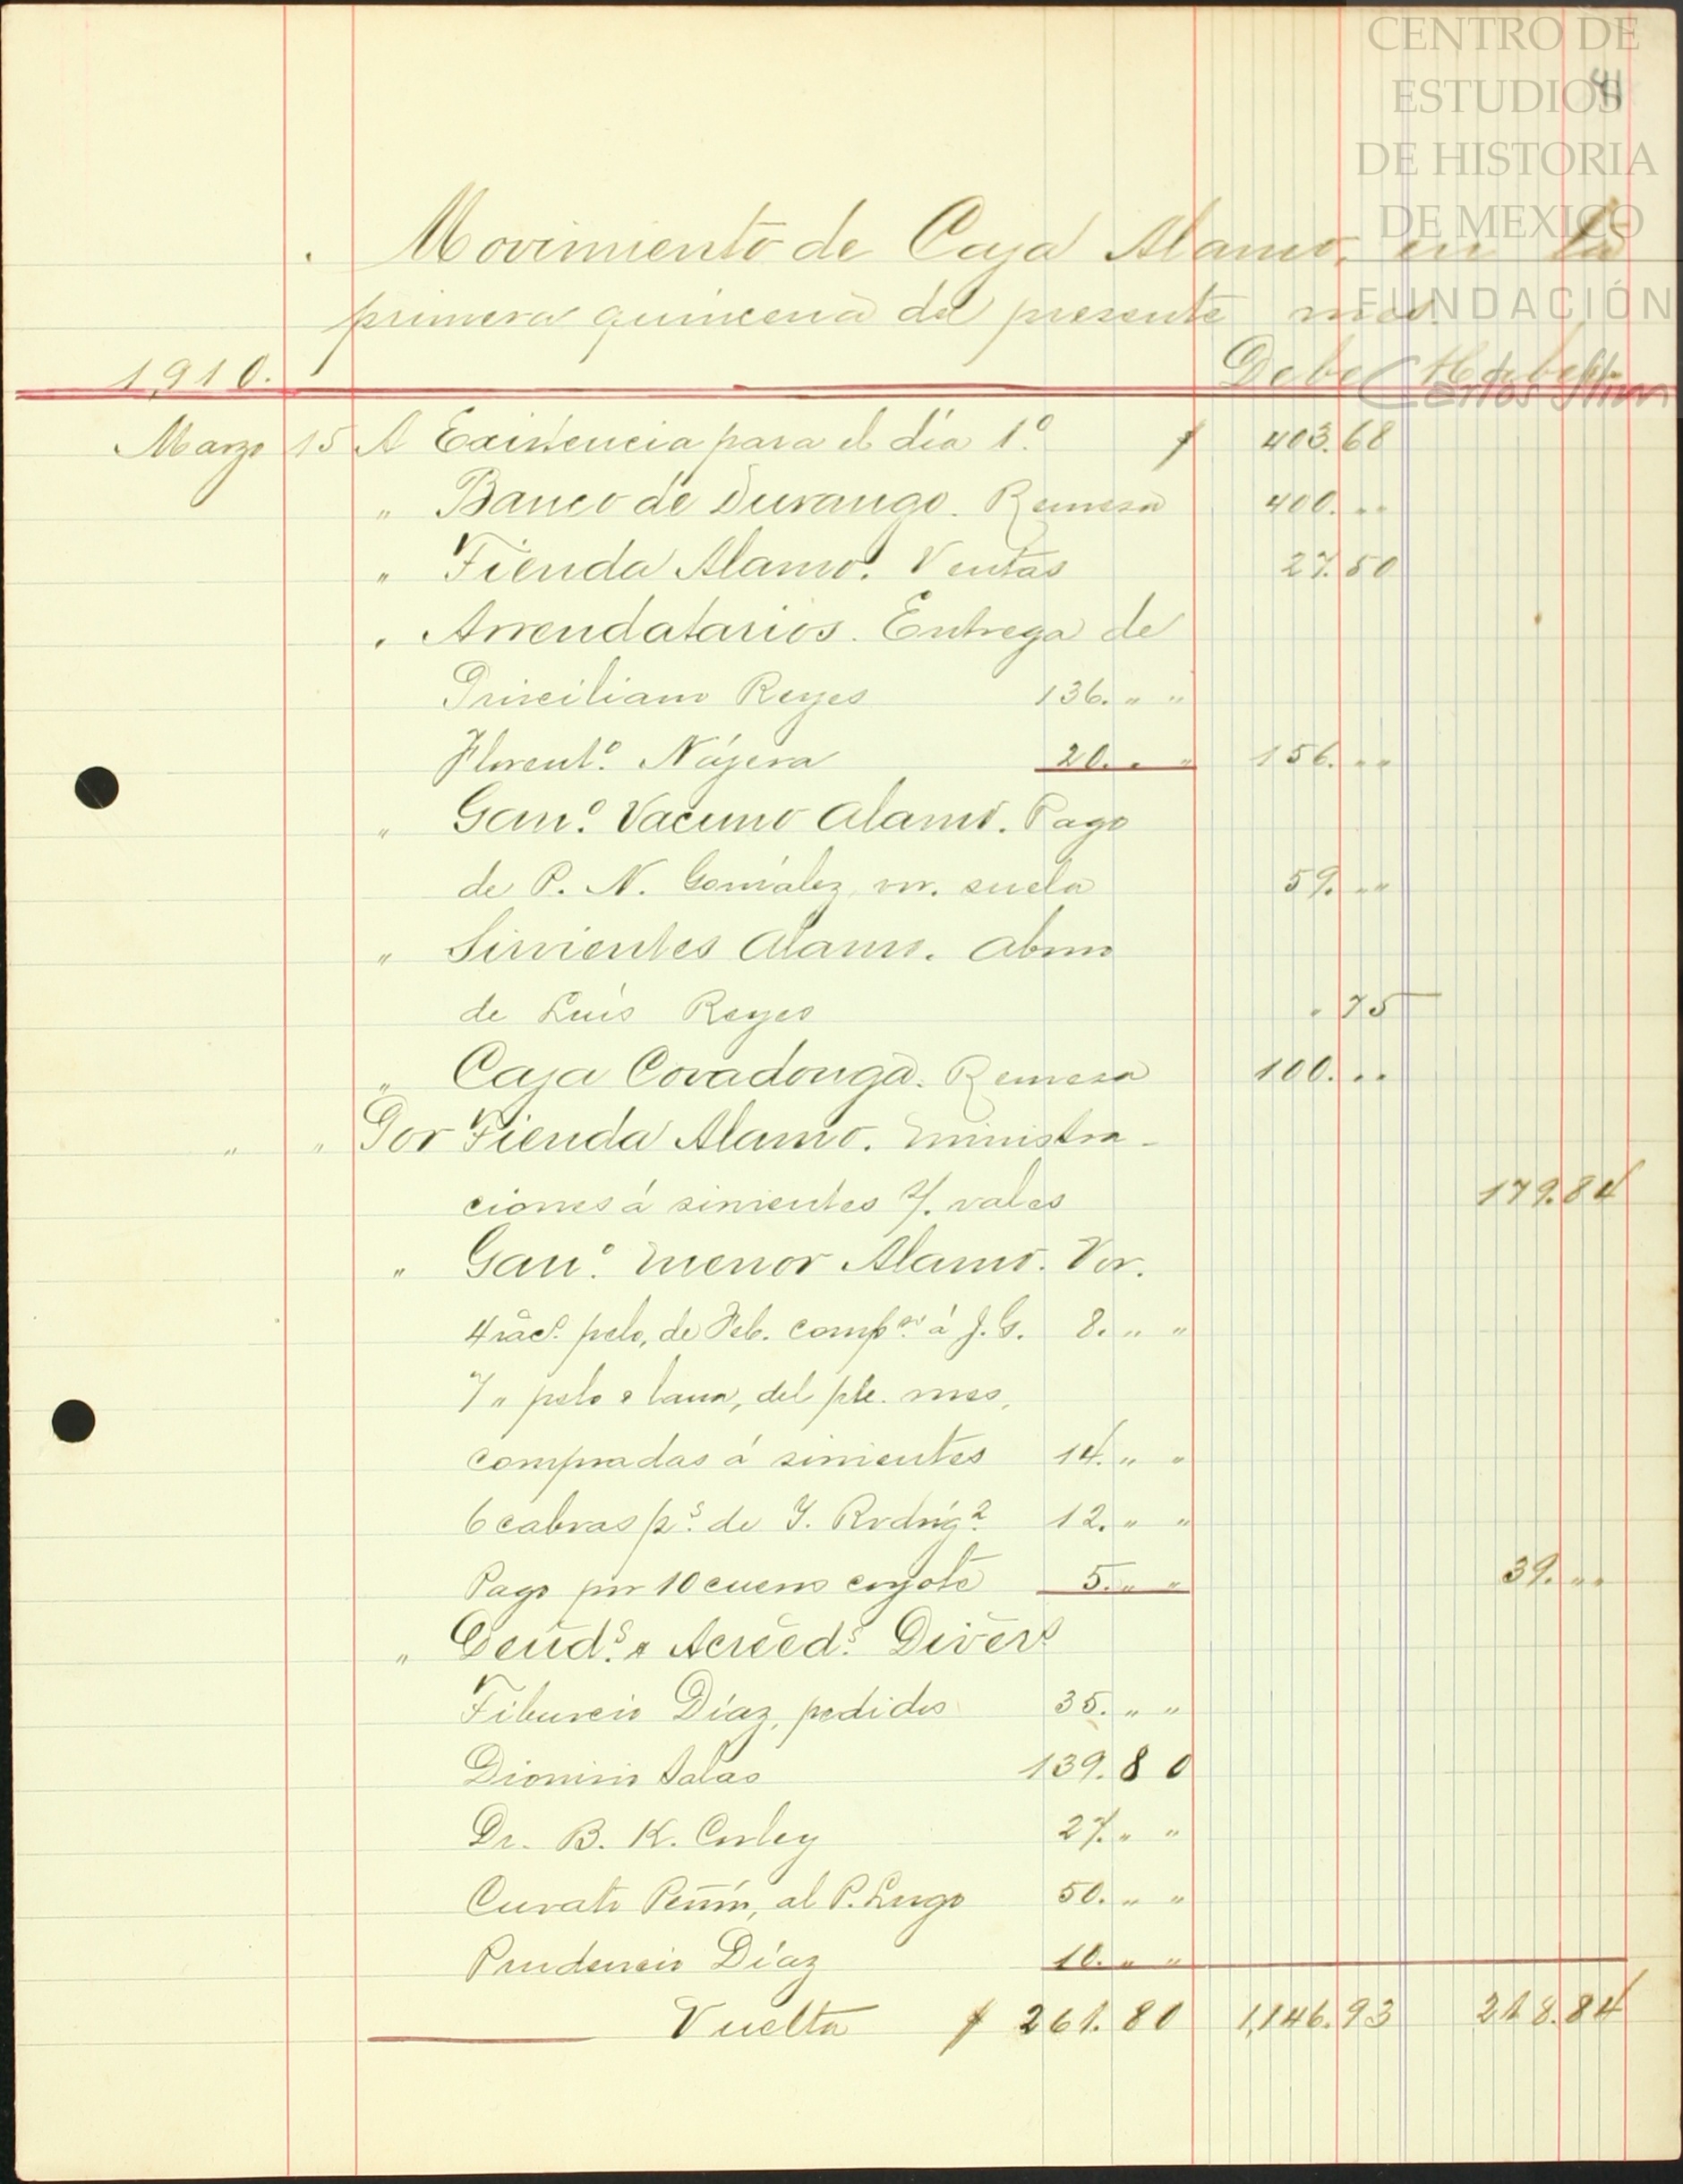 CENTRO DE
ESTUDIOS
DE HISTORIA
DE MEXICO
FUNDACIÓN
Carlos Slim
Movimiento de Caja Alamo, en la
primera quincena del presente mes.
1910. Debe Haber
Marzo 15 A Existencia para el día 1º $ 403.68
" Banco de Durango. Remesa 400. " "
" Tienda Alamo. Ventas 27.50
" Arrendatarios. Entrega de
Prisciliano Reyes 136. " "
Florentº Nájera 20. " " 156. " "
" Ganº Vacuno Alamo. Pago
de P. N. González, vr. suela 59. " "
" Sirvientes Alamo. Abono
de Luis Reyes . 75
" Caja Covadonga. Remesa 100. " "
" " Por Tienda Alamo. Ministra-
ciones á sirvientes s/. vales 179.84
" Ganº Menor Alamo. Vor.
4 racs. pelo, de Feb. comps. á J. G. 8. " "
7 " pelo y lana, del pte. mes,
compradas á sirvientes 14. " "
6 cabras ps. de Y. Rodrígz 12. " "
Pago por 10 cueros coyote 5. " " 39. " "
" Deuds. y Acreeds. Divers
Tiburcio Díaz, pedidos 35. " "
Dionisio Salas 139.80
Dr. B. K. Corley 27. " "
Curato Peñón, al P. Lugo 50. " "
Prudencio Díaz 10. " "
Vuelta $ 261.80 1,146.93 218.84